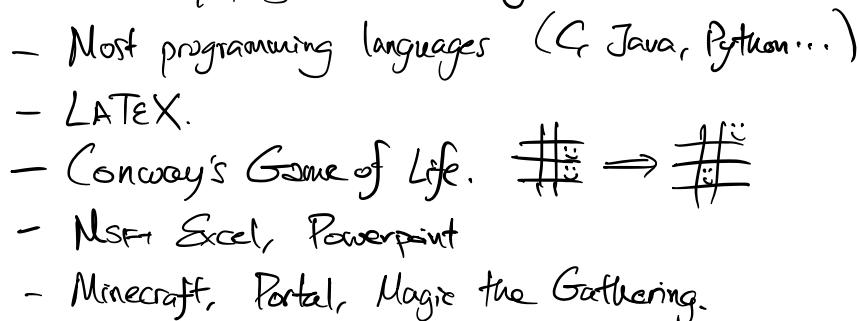 - Most programming languages (C, Java, Python...)
- LATEX.
- Conway's Game of Life. ⇒
- MSFT Excel, Powerpoint
- Minecraft, Portal, Magic the Gathering.